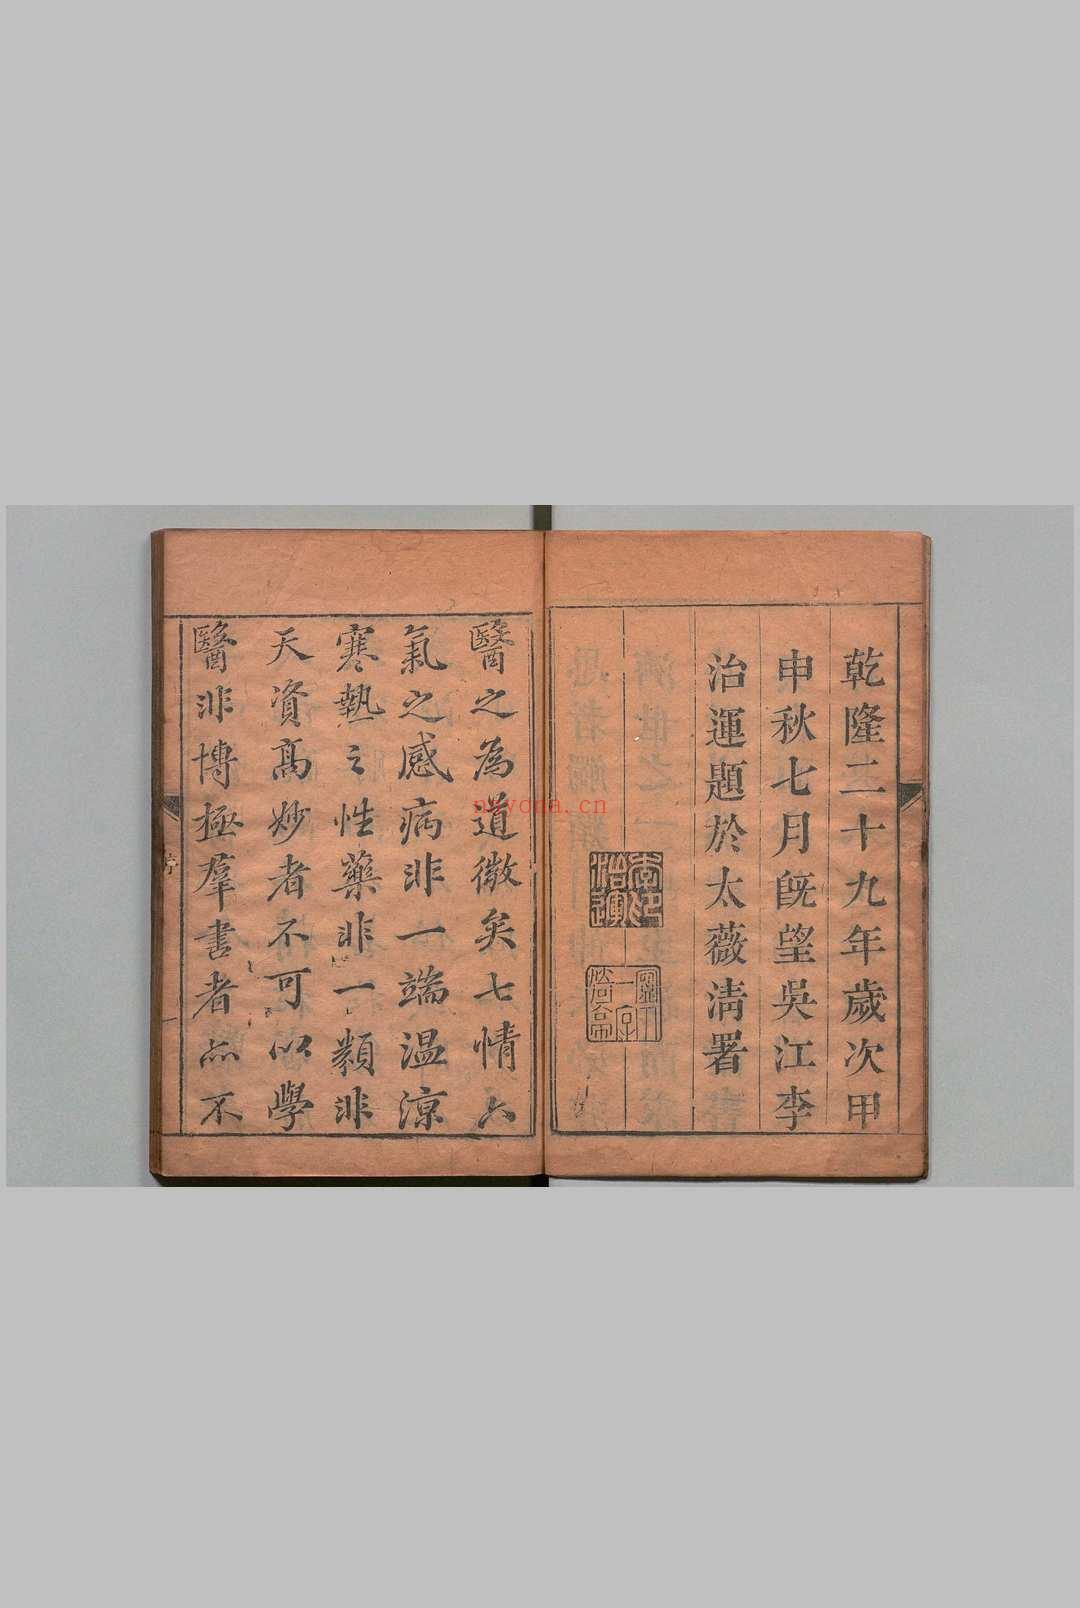 乾隆二十九年歲次甲
申秋七月既望吳江李
治運題於太薇淸署
醫之為道微矣七情六
氣之感病非一端温涼
寒熱之性藥非一類非
天資高妙者不可以學
醫非博極羣書者亦不
序
一
nayona.cn